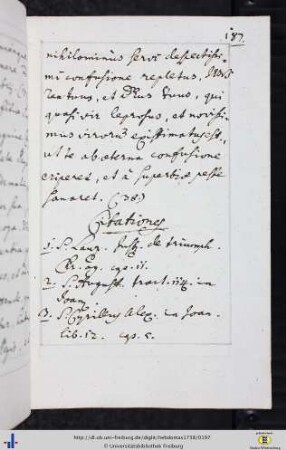 187.
nihilominus servus despectissi-
mi confusione repletus,
rentunt, et Deus tuus, qui
quasi vir leprosus, et novissi-
mus virorum existimatus est,
ut te ab aeterna confusione
eriperet, et à superbiae peste
sanaret. (38.)
Citationes
1. S. Laur. Just. de triumph.
Chr. ag. cap. 11.
2. S. August. tract. in
Joan.
3. S. Cyrillus Alex. in Joan.
lib. 12. cap.
http://dl.ub.uni-freiburg.de/diglit/hebdomas1738/0197
© Universitätsbibliothek Freiburg